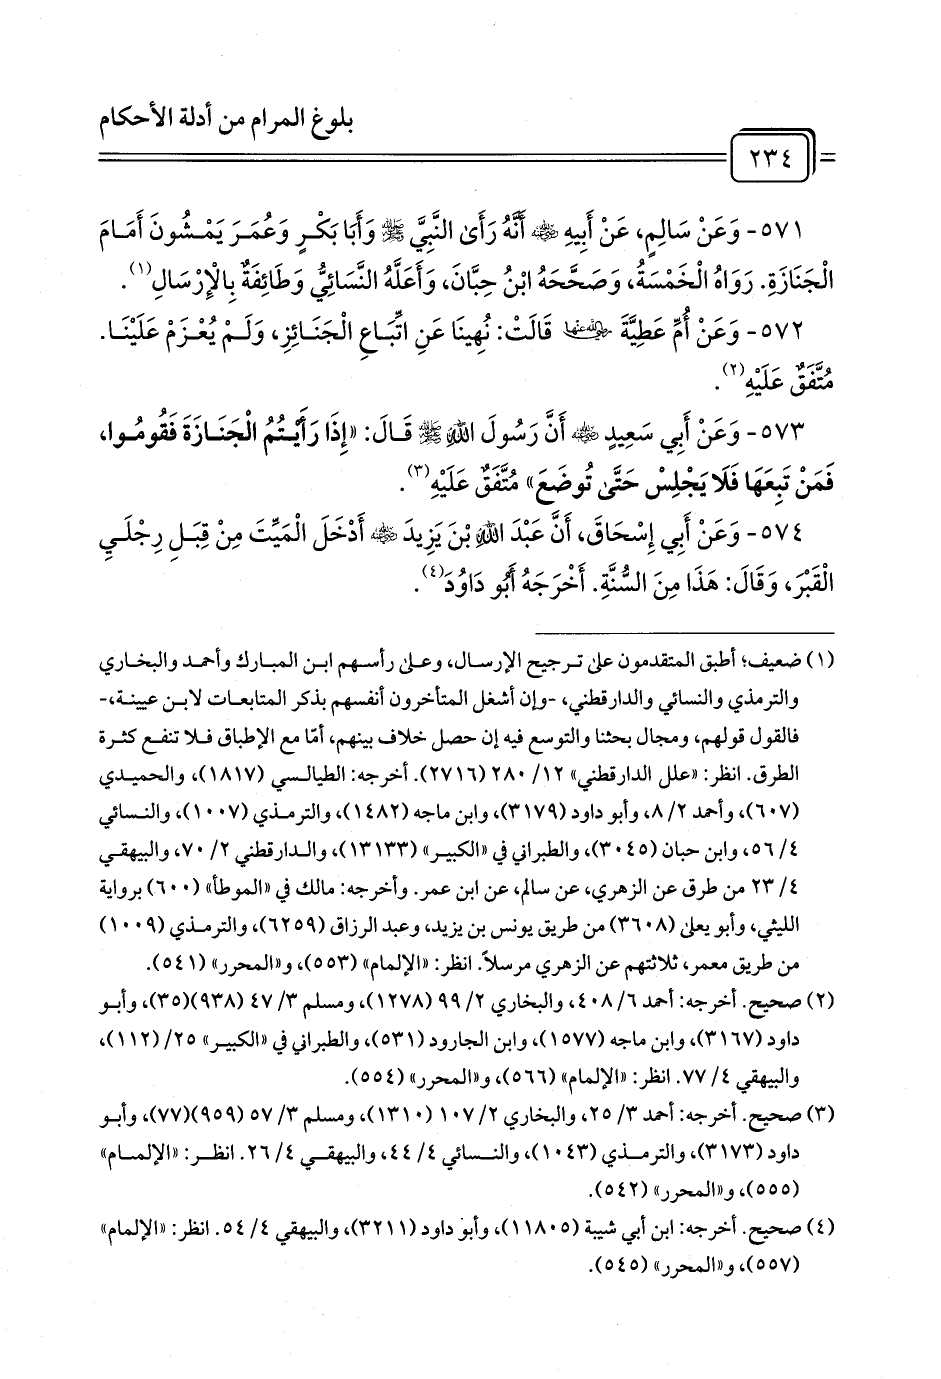 بلوغ المرام من أدلة الأحكام
٢٣٤
٥٧١- وَعَنْ سَالِمٍ، عَنْ أَبِيهِ ﵁ أَنَّهُ رَأَى النَّبِيَّ ﷺ وَأَبَا بَكْرٍ وَعُمَرَ يَمْشُونَ أَمَامَ
الْجَنَازَةِ. رَوَاهُ الْخَمْسَةُ، وَصَحَّحَهُ ابْنُ حِبَّانَ، وَأَعَلَّهُ النَّسَائِيُّ وَطَائِفَةٌ بِالْإِرْسَالِ(١).
٥٧٢- وَعَنْ أُمِّ عَطِيَّةَ ﵂ قَالَتْ: نُهِينَا عَنِ اتِّبَاعِ الْجَنَائِزِ، وَلَمْ يُعْزَمْ عَلَيْنَا.
مُتَّفَقٌ عَلَيْهِ(٢).
٥٧٣- وَعَنْ أَبِي سَعِيدٍ ﵁ أَنَّ رَسُولَ اللهِ ﷺ قَالَ: «إِذَا رَأَيْتُمُ الْجَنَازَةَ فَقُومُوا،
فَمَنْ تَبِعَهَا فَلَا يَجْلِسْ حَتَّى تُوضَعَ» مُتَّفَقٌ عَلَيْهِ(٣).
٥٧٤- وَعَنْ أَبِي إِسْحَاقَ، أَنَّ عَبْدَ اللهِ بْنَ يَزِيدَ ﵁ أَدْخَلَ الْمَيِّتَ مِنْ قِبَلِ رِجْلَيِ
الْقَبْرَ، وَقَالَ: هَذَا مِنَ السُّنَّةِ. أَخْرَجَهُ أَبُو دَاوُدَ(٤).
(١) ضعيف؛ أطبق المتقدمون على ترجيح الإرسال، وعلى رأسهم ابن المبارك وأحمد والبخاري
والترمذي والنسائي والدارقطني، -وإن أشغل المتأخرون أنفسهم بذكر المتابعات لابن عيينة،-
فالقول قولهم، ومجال بحثنا والتوسع فيه إن حصل خلاف بينهم، أمّا مع الإطباق فلا تنفع كثرة
الطرق. انظر: «علل الدارقطني» ١٢/ ٢٨٠ (٢٧١٦). أخرجه: الطيالسي (١٨١٧)، والحميدي
(٦٠٧)، وأحمد ٢/ ٨، وأبو داود (٣١٧٩)، وابن ماجه (١٤٨٢)، والترمذي (١٠٠٧)، والنسائي
٤/ ٥٦، وابن حبان (٣٠٤٥)، والطبراني في «الكبير» (١٣١٣٣)، والدارقطني ٢/ ٧٠، والبيهقي
٤/ ٢٣ من طرق عن الزهري، عن سالم، عن ابن عمر. وأخرجه: مالك في «الموطأ» (٦٠٠) برواية
الليثي، وأبو يعلى (٣٦٠٨) من طريق يونس بن يزيد، وعبد الرزاق (٦٢٥٩)، والترمذي (١٠٠٩)
من طريق معمر، ثلاثتهم عن الزهري مرسلاً. انظر: «الإلمام» (٥٥٣)، و«المحرر» (٥٤١).
(٢) صحيح. أخرجه: أحمد ٦/ ٤٠٨، والبخاري ٢/ ٩٩ (١٢٧٨)، ومسلم ٣/ ٤٧ (٩٣٨)(٣٥)، وأبو
داود (٣١٦٧)، وابن ماجه (١٥٧٧)، وابن الجارود (٥٣١)، والطبراني في «الكبير» ٢٥/ (١١٢)،
والبيهقي ٤/ ٧٧. انظر: «الإلمام» (٥٦٦)، و«المحرر» (٥٥٤).
(٣) صحيح. أخرجه: أحمد ٣/ ٢٥، والبخاري ٢/ ١٠٧ (١٣١٠)، ومسلم ٣/ ٥٧ (٩٥٩)(٧٧)، وأبو
داود (٣١٧٣)، والترمذي (١٠٤٣)، والنسائي ٤/ ٤٤، والبيهقي ٤/ ٢٦. انظر: «الإلمام»
(٥٥٥)، و«المحرر» (٥٤٢).
(٤) صحيح. أخرجه: ابن أبي شيبة (١١٨٠٥)، وأبو داود (٣٢١١)، والبيهقي ٤/ ٥٤. انظر: «الإلمام»
(٥٥٧)، و«المحرر» (٥٤٥).